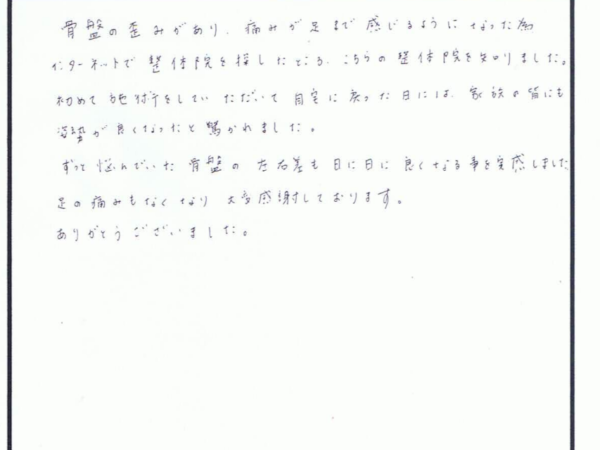 骨盤の歪みがあり、痛みが足まで感じるようになった為
インターネットで整体院を探したところ、こちらの整体院を知りました。
初めて施術をしていただいて自宅に戻った日には、家族の皆にも
姿勢が良くなったと驚かれました。
ずっと悩んでいた骨盤の左右差も日に日に良くなる事を実感しました
足の痛みもなくなり大変感謝しております。
ありがとうございました。